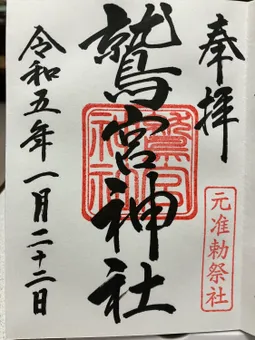 奉拝
元准勅祭社
鷲宮神社
鷲宮神社
令和五年一月二十二日